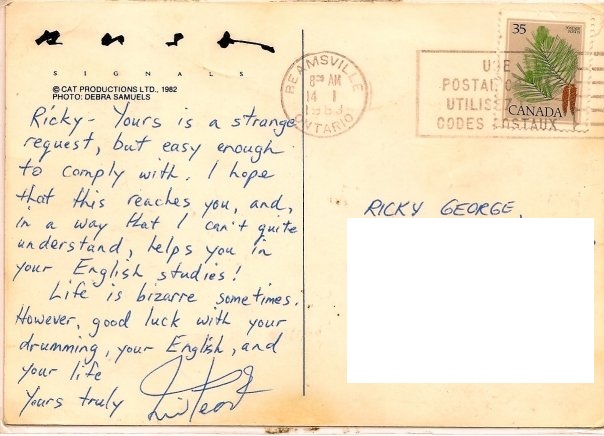 r u s h
S I G N A L S
© CAT PRODUCTIONS LTD., 1982
PHOTO: DEBRA SAMUELS
Ricky - Yours is a strange
request, but easy enough
to comply with. I hope
that this reaches you, and,
in a way that I can't quite
understand, helps you in
your English studies!
Life is bizarre sometimes.
However, good luck with your
drumming, your English, and
your life
Yours truly
BEAMSVILLE
AM
14 I
1983
ONTARIO
USE
POSTAL
UTILISEZ
CODES POSTAUX
35
CANADA
RICKY GEORGE,